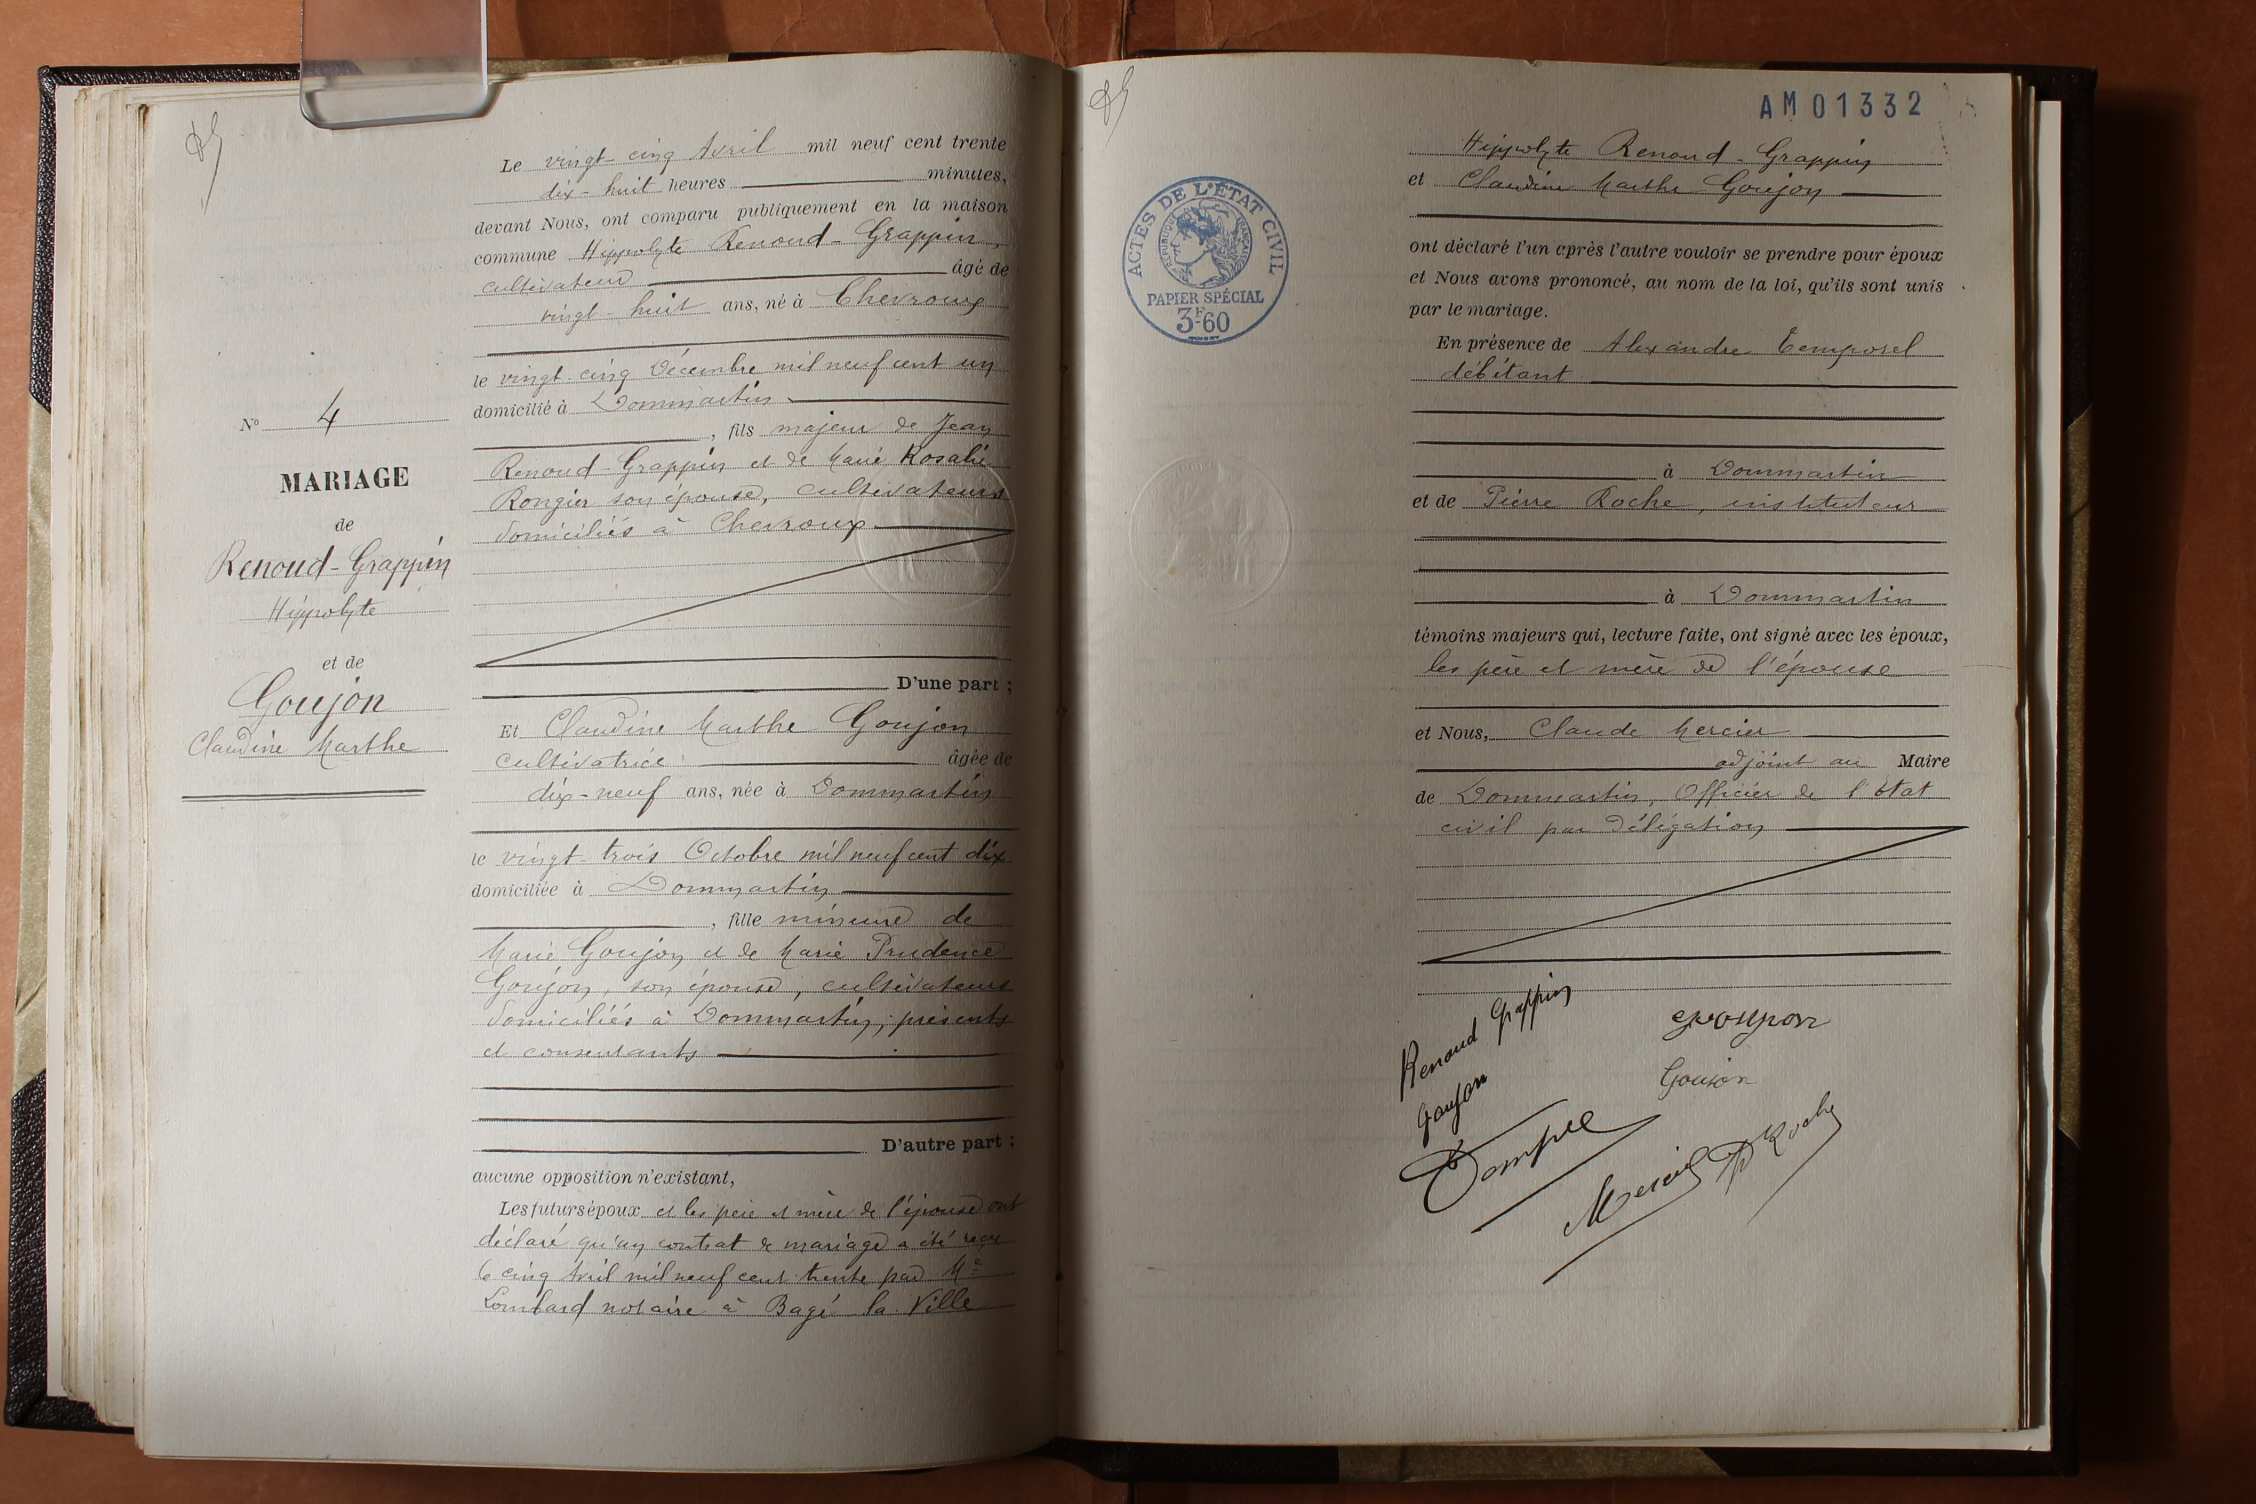 Nº 4
MARIAGE
de
Renoud-Grappin
Hippolyte
et de
Goujon
Claudine Marthe
Le vingt-cinq Avril mil neuf cent trente
dix-huit heures minutes,
devant Nous, ont comparu publiquement en la maison
commune Hippolyte Renoud-Grappin,
cultivateur âgé de
vingt-huit ans, né à Chevroux
le vingt-cinq Décembre mil neuf cent un
domicilié à Dommartin
, fils majeur de Jean
Renoud-Grappin et de Marie Rosalie
Rongier son épouse, cultivateurs
domiciliés à Chevroux
D'une part ;
Et Claudine Marthe Goujon
cultivatrice âgée de
dix-neuf ans, née à Dommartin
le vingt-trois Octobre mil neuf cent dix
domiciliée à Dommartin
, fille mineure de
Marie Goujon et de Marie Prudence
Goujon, son épouse, cultivateurs
domiciliés à Dommartin, présents
et consentants
D'autre part ;
aucune opposition n'existant,
Les futurs époux et les père et mère de l'épouse ont
déclaré qu'un contrat de mariage a été reçu
le cinq Avril mil neuf cent trente par Me
Lombard notaire à Bagé la Ville
AM 01332
ACTES DE L'ÉTAT CIVIL
RÉPUBLIQUE FRANÇAISE
PAPIER SPÉCIAL
3F60
Hippolyte Renoud-Grappin
et Claudine Marthe Goujon
ont déclaré l'un après l'autre vouloir se prendre pour époux
et Nous avons prononcé, au nom de la loi, qu'ils sont unis
par le mariage.
En présence de Alexandre Temporel
débitant
à Dommartin
et de Pierre Roche, instituteur
à Dommartin
témoins majeurs qui, lecture faite, ont signé avec les époux,
les père et mère de l'épouse
et Nous, Claude Mercier
adjoint au Maire
de Dommartin, Officier de l'état
civil par délégation
Renoud Grappin
Goujon
Goujon
Goujon
Mercier
P Roche